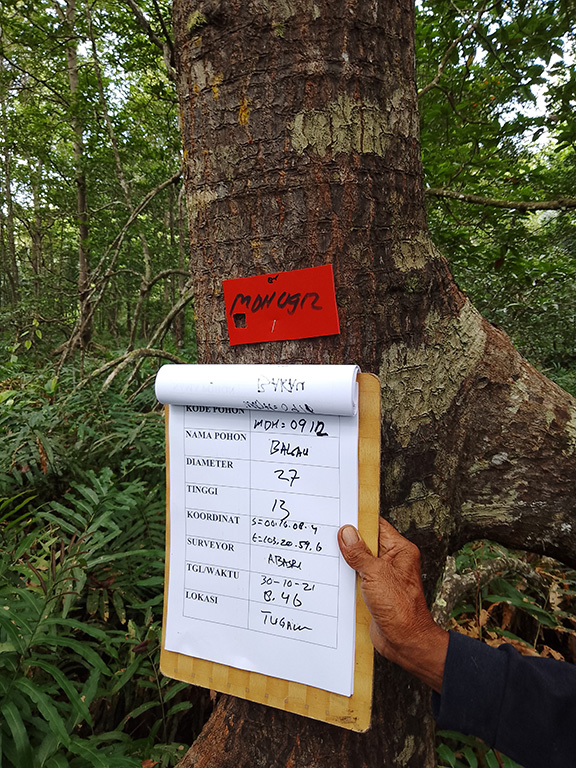 MDH 0912
KODE POHON MDH=0912
NAMA POHON BAKAU
DIAMETER 27
TINGGI 13
KOORDINAT S=00.16.08.4
E=103.20.59.6
SURVEYOR ABASRI
TGL/WAKTU 30-10-21
8.46
LOKASI TUGAU